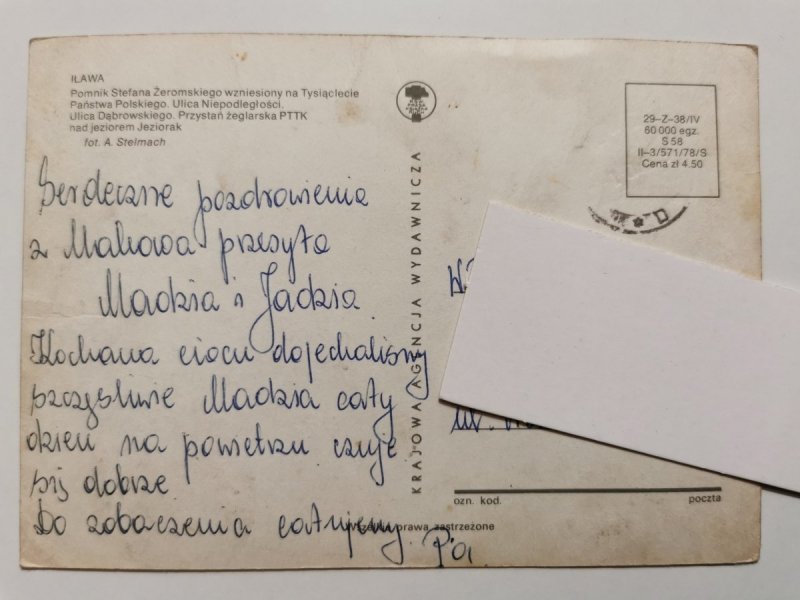 IŁAWA
Pomnik Stefana Żeromskiego wzniesiony na Tysiąclecie
Państwa Polskiego. Ulica Niepodległości.
Ulica Dąbrowskiego. Przystań żeglarska PTTK
nad jeziorem Jeziorak
fot. A. Stelmach
Serdeczne pozdrowienia
z Makowa przesyła
Madzia i Jadzia
Kochana ciociu dojechaliśmy
szczęśliwie Madzia cały
dzień na powietrzu czuje
się dobrze
Do zobaczenia całujemy.
Pa
KRAJOWA AGENCJA WYDAWNICZA
29-Z-38/IV
60 000 egz.
S 58
II-3/571/78/S
Cena zł 4.50
ul.
ozn. kod. poczta
Wszelkie prawa zastrzeżone